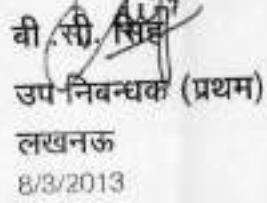 बी .सी. सिंह
उप-निबन्धक (प्रथम)
लखनऊ
8/3/2013